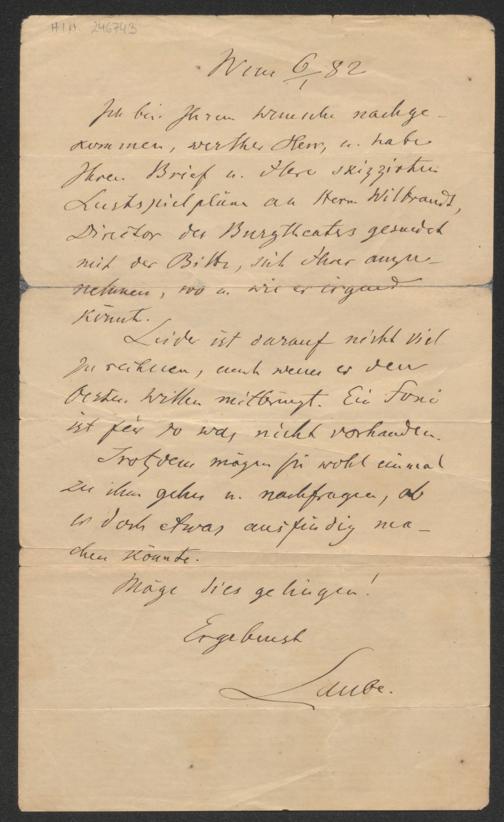 H.I.N. 246743
Wien 6/1 82
Ich bin Ihrem Wunsche nachge-
kommen, werther Herr, u. habe
Ihren Brief u. Ihre skizzirten
Lustspielpläne an Herrn Wilbrandt,
Director des Burgtheaters gesandt
mit der Bitte, sich Ihrer anzu-
nehmen, wo u. wie er irgend
könnte.
Leider ist darauf nicht viel
zu rechnen, auch wenn er den
besten Willen mitbringt. Ein Fond
ist für so was nicht vorhanden.
Trotzdem mögen Sie wohl einmal
zu ihm gehen u. nachfragen, ob
er doch etwas ausfindig ma-
chen könnte.
Möge dies gelingen!
Ergebenst
Laube.